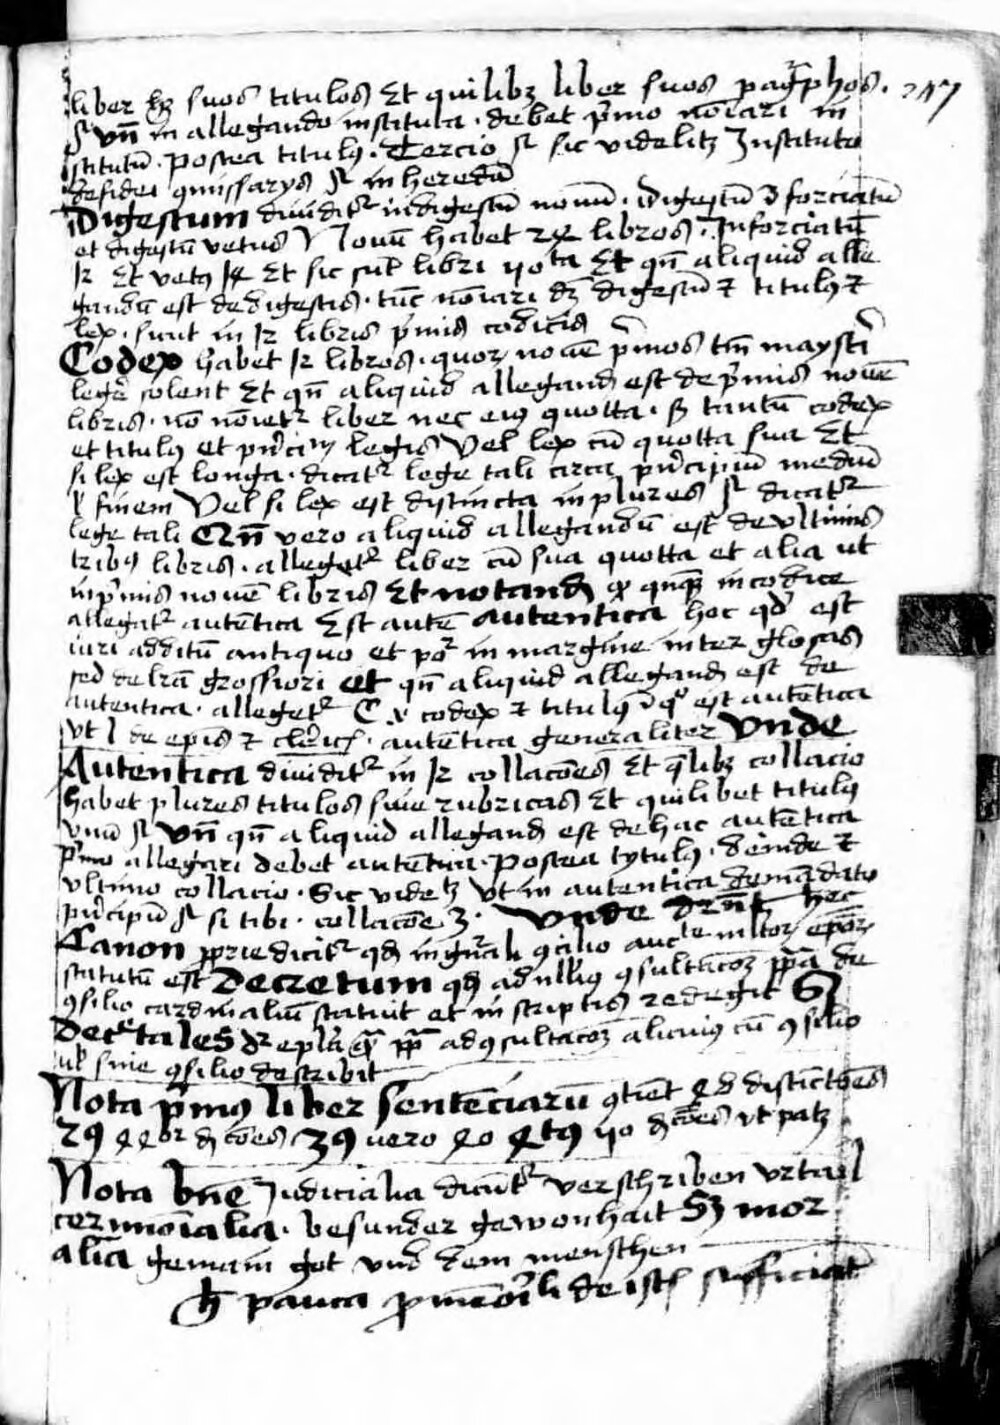 liber hꝫ suos titulos Et quilibꝫ liber suos pagͣphos · 247
sꝫ vn̄ in allegando instituta · debet pͥmo no͞iari in
stitutū · Postea titulꝰ · Tercio sꝫ sic videlitꝫ Instituto
de fidei ꝯmissarijs sꝫ in heredū
Digestum diuiditͬ in digestū nouū · digestū Iforciatū
et digestū vetus Nouū habet 24 libros · Inforciatū
12 Et vetꝰ 14 Et sic sūt libri 50ta Et qn̄ aliquid alle
gandū est de digestis · tūc no͞iari dꝫ digestū ⁊ titulꝰ ⁊
lex · sunt in 12 libris pͥmis codicis
Codex habet 12 libros · quoꝝ nouē pͥmos tm̄ maystri
legeͬ solent Et qn̄ aliquid allegand̄ est de pͥmis nouē
libris · nō no͞ietͬ liber nec eiꝰ quotta · sꝫ tantū codex
et titulꝰ et pͥncim̄ legis Vel lex cū quotta sua Et
si lex est longa · dicatͬ lege tali circa pͥncipiū mediū
ł finem Vel si lex est distincta in plures § dicatͬ
lege tali Qn̄ vero aliquid allegandū est de vltimis
tribꝰ libris · allegetͬ liber cū sua quotta et alia ut
in pͥmis nouē libris Et notand̄ ꝙ qn̄qꝫ in codice
allegatͬ autētica Est autē autentica hoc qd̄ est
iuri additū antiquo et poͬ in margine inter glosas
sed de lrā grossiori et qn̄ aliquid allegand̄ est de
autentica · allegetͬ C codex ⁊ titulꝰ ī qͦ est autētica
vt C de epis̄ ⁊ clͤicꝭ · autētica generaliter Vnde
Autentica diuiditͬ in 12 collac̄oēs Et qͣlibꝫ collacio
habet plures titulos siue rubricas Et quilibet titulꝰ
vnū § Vn̄ qn̄ aliquid allegand̄ est de hac autētica
pͥmo allegari debet autētica · Postea tytulꝰ · deinde ⁊
vltimo collacio · Sic videlꝫ vt in autentica de mādato
pͥncipū § si tibi · collac̄oē 3 · Vnde drn̄t hec
Canon ꝓprie dicitͬ qd̄ in gnͣali ꝯcilio auctͤ mltoꝝ epoꝝ
statutū est Decretum qd̄ ad nulliꝰ ꝯsultac̄oꝫ pp̄a de
ꝯsilio cardinaliū statuit et in scriptis redegit Sꝫ
Decͤtales dr̄ epl̄a qͣ pp̄a ad ꝯsultac̄oꝫ alicuiꝰ cū ꝯsilio
ul̄ sine ꝯsilio describit
Nota pͥmꝰ liber sentēciarū ꝯtinet 48 distīctōes
2ꝰ 44or dꝭtōes 3ꝰ vero 40 4tꝰ 50 dꝭtōes vt patꝫ
Nota bn̄e Judicialia dicūtͬ verschriben vrtail
cerimōialia · besunder gewonhait Sꝫ mor
alia gemain got vnd dem menschen
hͨ pauca ꝓ mēoͬli de istꝭ sufficiāt